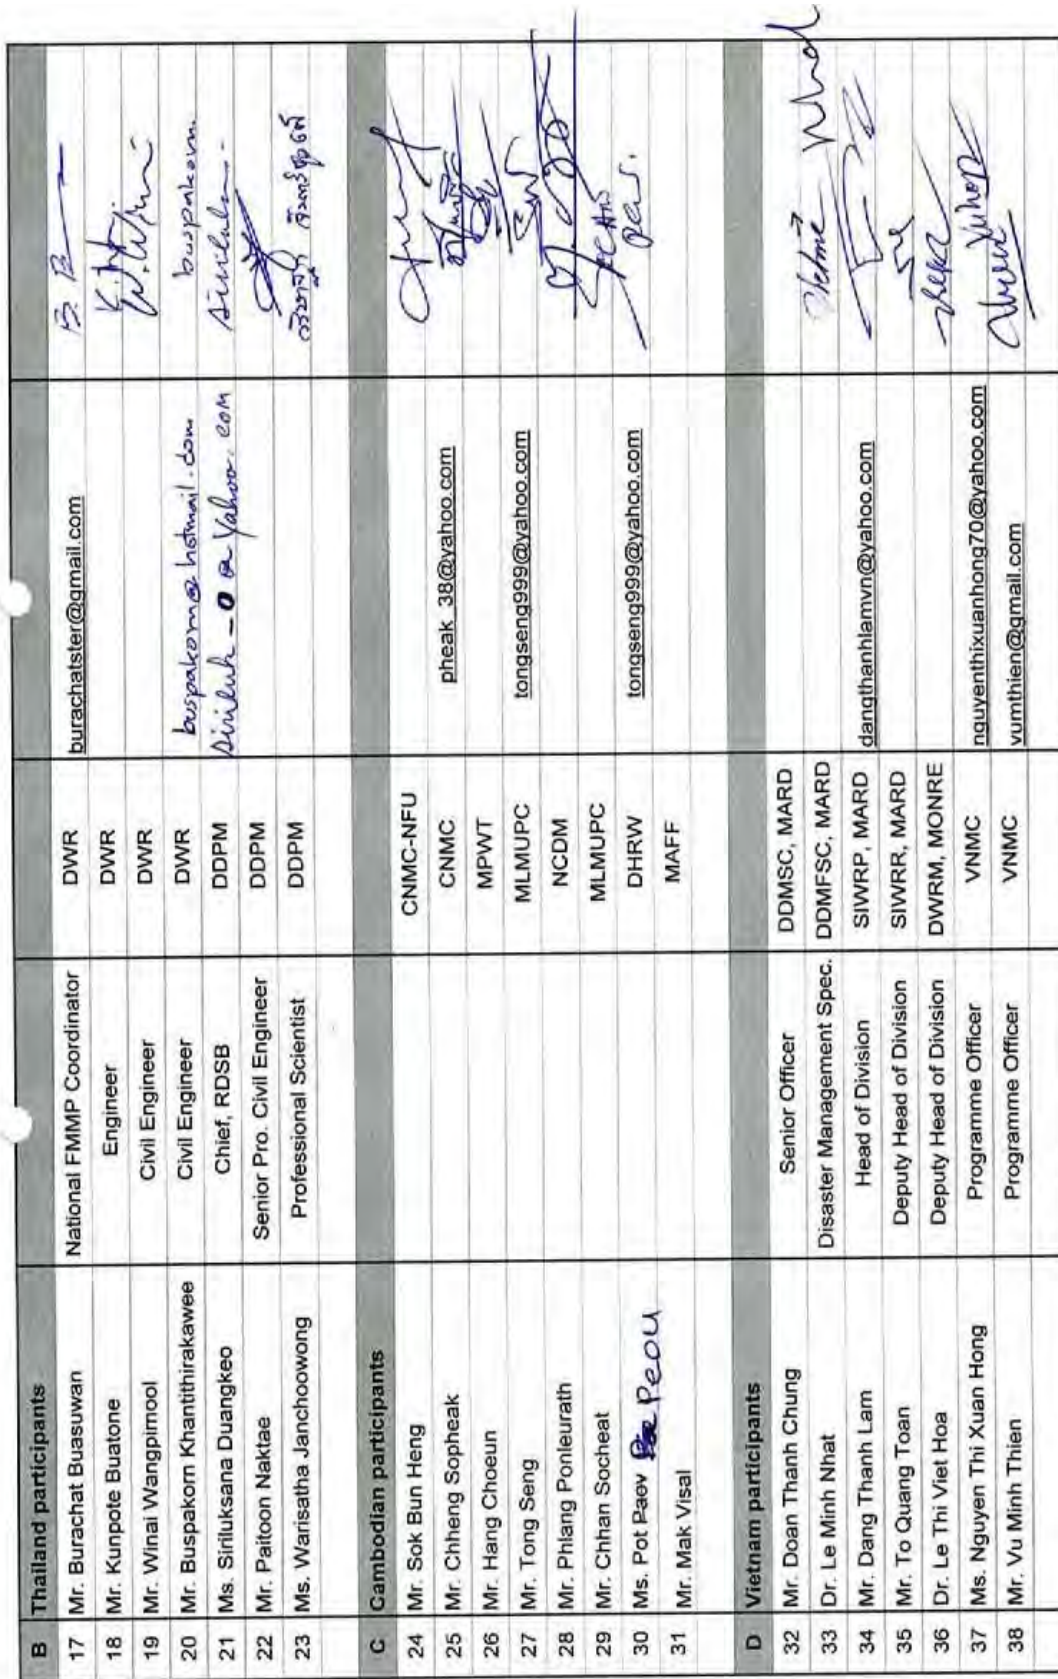 B Thailand participants
17 Mr. Burachat Buasuwan National FMMP Coordinator DWR burachatster@gmail.com B. B
18 Mr. Kunpote Buatone Engineer DWR
19 Mr. Winai Wangpimool Civil Engineer DWR
20 Mr. Buspakorn Khantithirakawee Civil Engineer DWR buspakorn@hotmail.com buspakorn
21 Ms. Siriluksana Duangkeo Chief, RDSB DDPM siriluk_o@yahoo.com
22 Mr. Paitoon Naktae Senior Pro. Civil Engineer DDPM
23 Ms. Warisatha Janchoowong Professional Scientist DDPM
C Cambodian participants
24 Mr. Sok Bun Heng CNMC-NFU
25 Mr. Chheng Sopheak CNMC pheak_38@yahoo.com
26 Mr. Hang Choeun MPWT
27 Mr. Tong Seng MLMUPC tongseng999@yahoo.com
28 Mr. Phlang Ponleurath NCDM
29 Mr. Chhan Socheat MLMUPC
30 Ms. Pot Paov Peou DHRW tongseng999@yahoo.com
31 Mr. Mak Visal MAFF
D Vietnam participants
32 Mr. Doan Thanh Chung Senior Officer DDMSC, MARD
33 Dr. Le Minh Nhat Disaster Management Spec. DDMFSC, MARD
34 Mr. Dang Thanh Lam Head of Division SIWRP, MARD dangthanhlamvn@yahoo.com
35 Mr. To Quang Toan Deputy Head of Division SIWRR, MARD
36 Dr. Le Thi Viet Hoa Deputy Head of Division DWRM, MONRE
37 Ms. Nguyen Thi Xuan Hong Programme Officer VNMC nguyenthixuanhong70@yahoo.com
38 Mr. Vu Minh Thien Programme Officer VNMC vumthien@gmail.com